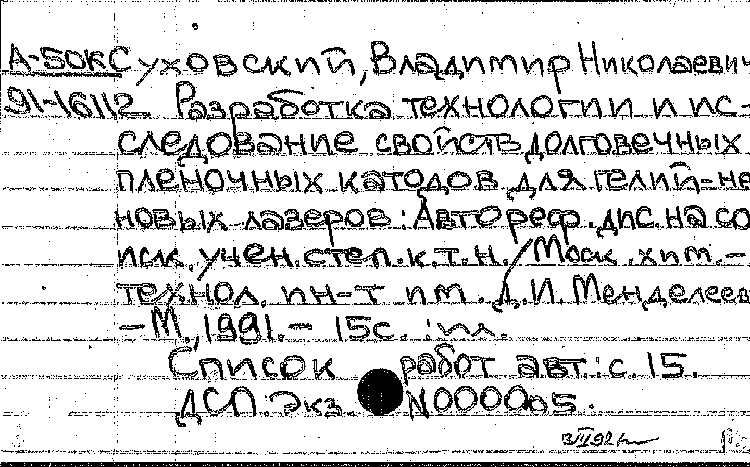 А-50КС Суховский, Владимир Николаевич
91-16112. Разработка технологии и ис-
следование свойств долговечных
пленочных катодов для гелий-не
новых лазеров: Автореф. дис. на со
иск. учен. степ. к.т.н. / Моск. хим.-
технол. ин-т им. Д.И. Менделеев
- М., 1991. - 15с. : ил.
Список работ авт.: с. 15.
ДСП. Экз. N000005.